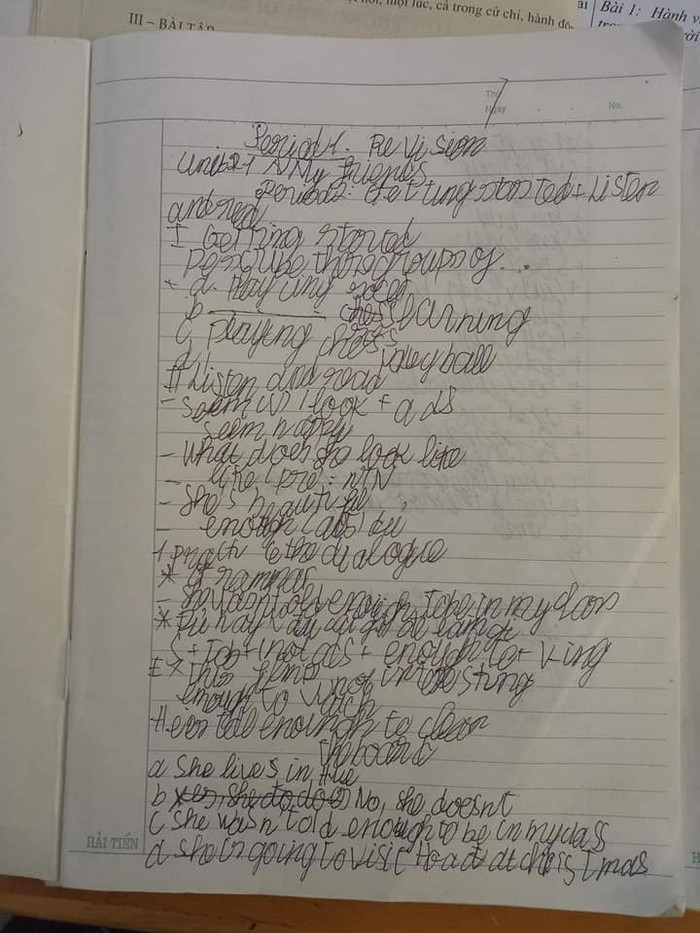 III – BÀI TẬP
mọi lúc, cả trong cử chỉ, hành
Bài 1: Hành
Thứ
Ngày
No.
Period 1. Revision
My friends
Period2: Getting started + Listen
and read
I Getting
groups of...
a. Playing
b chess learning
c, playing chess
d, volleyball
II Listen and read
- seem (v) look + adj
seem happy
- What does she look like
- like (pre): N
- She's beautiful
- enough (adv) đủ
1 the dialogue
* Grammar
- She wasn't old enough to be in my class
* đủ để làm gì
S + Tobe + (not adj + enough to + V-ing
* This not interesting
enough to
He is tall enough to clean
the board
a She lives in Hue
b No, she doesnt
c she wasn't old enough to be in my class
d she is going to visit at christmas
HẢI TIẾN